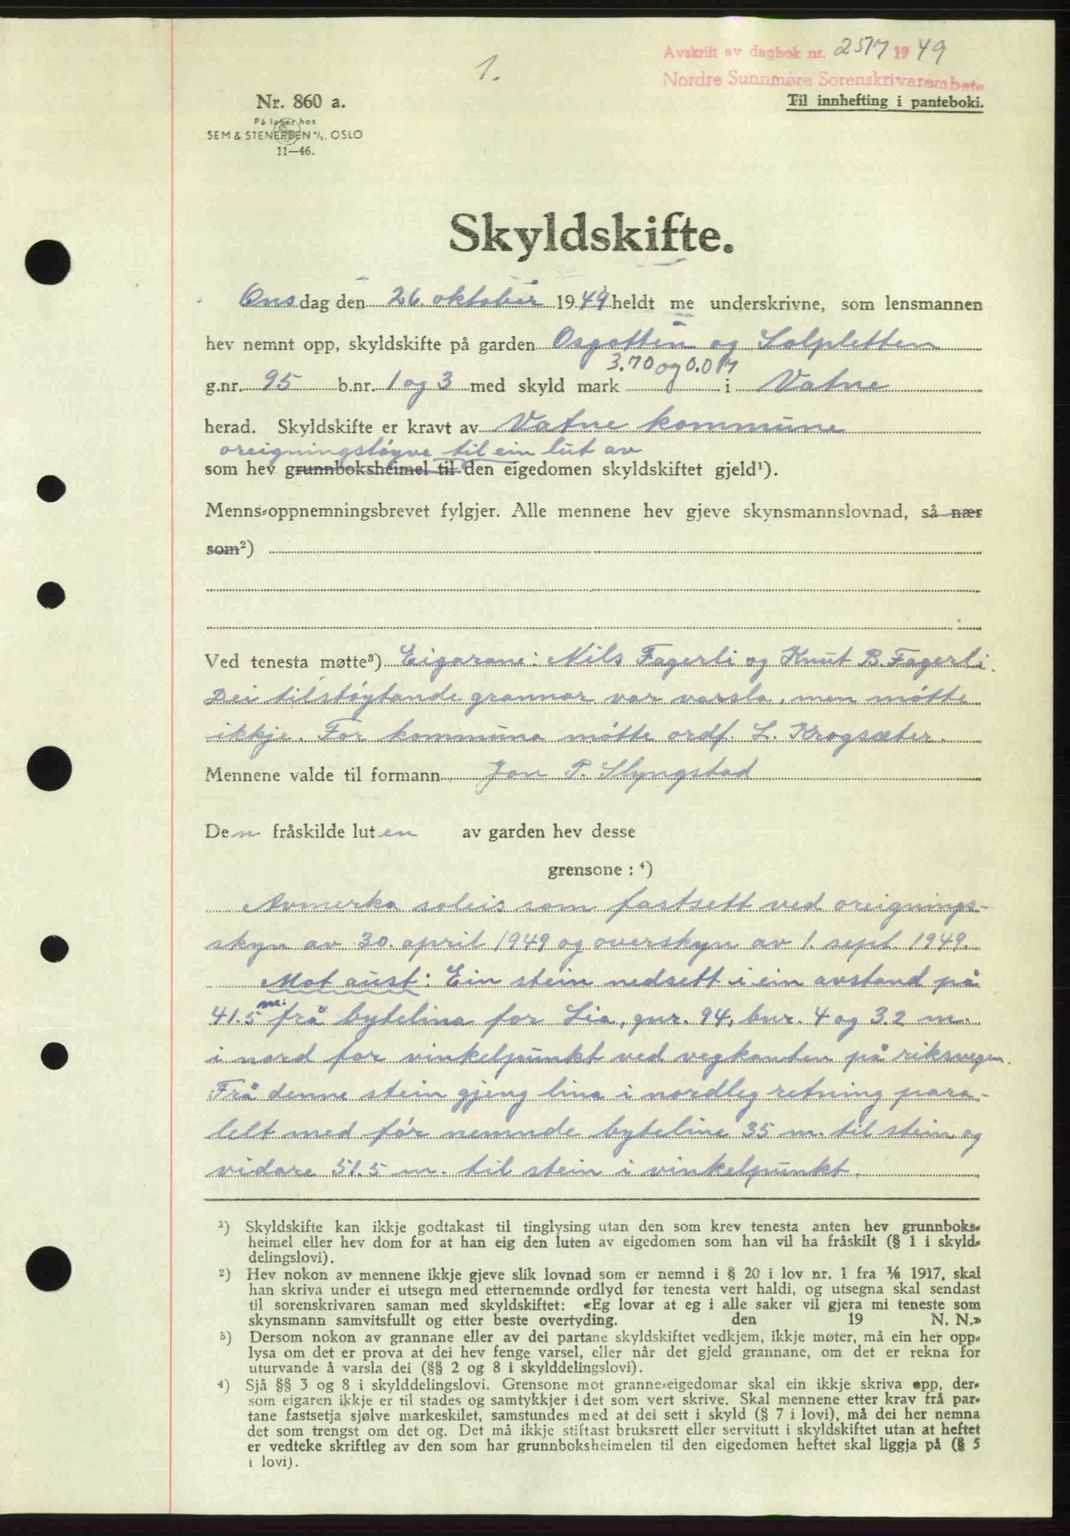 1.
Avskrift av dagbok nr. 2577 1949
Nordre Sunnmøre Sorenskrivarembete
Til innhefting i panteboki.
Nr. 860 a.
På lager hos
SEM & STENERSEN A/S. OSLO
11—46.
Skyldskifte.
Onsdag den 26. oktober 1949 heldt me underskrivne, som lensmannen
hev nemnt opp, skyldskifte på garden Osgotten og Solpletten
3.70 og 0.07
g.nr. 95 b.nr. 1 og 3 med skyld mark i Vatne
herad. Skyldskifte er kravt av Vatne kommune
oreigningsløyve til ein lut av
som hev grunnboksheimel til den eigedomen skyldskiftet gjeld¹).
Menns-oppnemningsbrevet fylgjer. Alle mennene hev gjeve skynsmannslovnad, så nær
som²)
Ved tenesta møtte³) Eigarane: Nils Fagerli og Knut B. Fagerli.
Dei tilstøytande grannar var varsla, men møtte
ikkje. For kommuna møtte ordf. L. Krogsæter.
Mennene valde til formann Jon P. Slyngstad
Den fråskilde luten av garden hev desse
grensone : ⁴)
Avmerka soleis som fastsett ved oreignings-
skyn av 30. april 1949 og overskyn av 1. sept 1949.
Mot aust: Ein stein nedsett i ein avstand på
41.5 m. frå bytelina for Lia, gnr. 94, bnr. 4 og 3.2 m.
i nord for vinkelpunkt ved vegkanten på riksvegen.
Frå denne stein gjeng lina i nordleg retning para-
lelt med før nemnde byteline 35 m. til stein og
vidare 51.5 m. til stein i vinkelpunkt.
¹) Skyldskifte kan ikkje godtakast til tinglysing utan den som krev tenesta anten hev grunnboks-
heimel eller hev dom for at han eig den luten av eigedomen som han vil ha fråskilt (§ 1 i skyld-
delingslovi).
²) Hev nokon av mennene ikkje gjeve slik lovnad som er nemnd i § 20 i lov nr. 1 fra ⅛ 1917, skal
han skriva under ei utsegn med etternemnde ordlyd før tenesta vert haldi, og utsegna skal sendast
til sorenskrivaren saman med skyldskiftet: «Eg lovar at eg i alle saker vil gjera mi teneste som
skynsmann samvitsfullt og etter beste overtyding. den 19 N. N.»
³) Dersom nokon av grannane eller av dei partane skyldskiftet vedkjem, ikkje møter, må ein her opp-
lysa om det er prova at dei hev fenge varsel, eller når det gjeld grannane, om det er rekna for
uturvande å varsla dei (§§ 2 og 8 i skylddelingslovi).
⁴) Sjå §§ 3 og 8 i skylddelingslovi. Grensone mot granne-eigedomar skal ein ikkje skriva opp, der-
som eigaren ikkje er til stades og samtykkjer i det som vert skrive. Skal mennene etter krav frå par-
tane fastsetja sjølve markeskilet, samstundes med at dei sett i skyld (§ 7 i lovi), må dei her nemna
det som trengst om det og. Det må ikkje stiftast bruksrett eller servitutt i skyldskiftet utan at heftet
er vedteke skriftleg av den som har grunnboksheimelen til den eigedomen heftet skal liggja på (§ 5
i lovi).